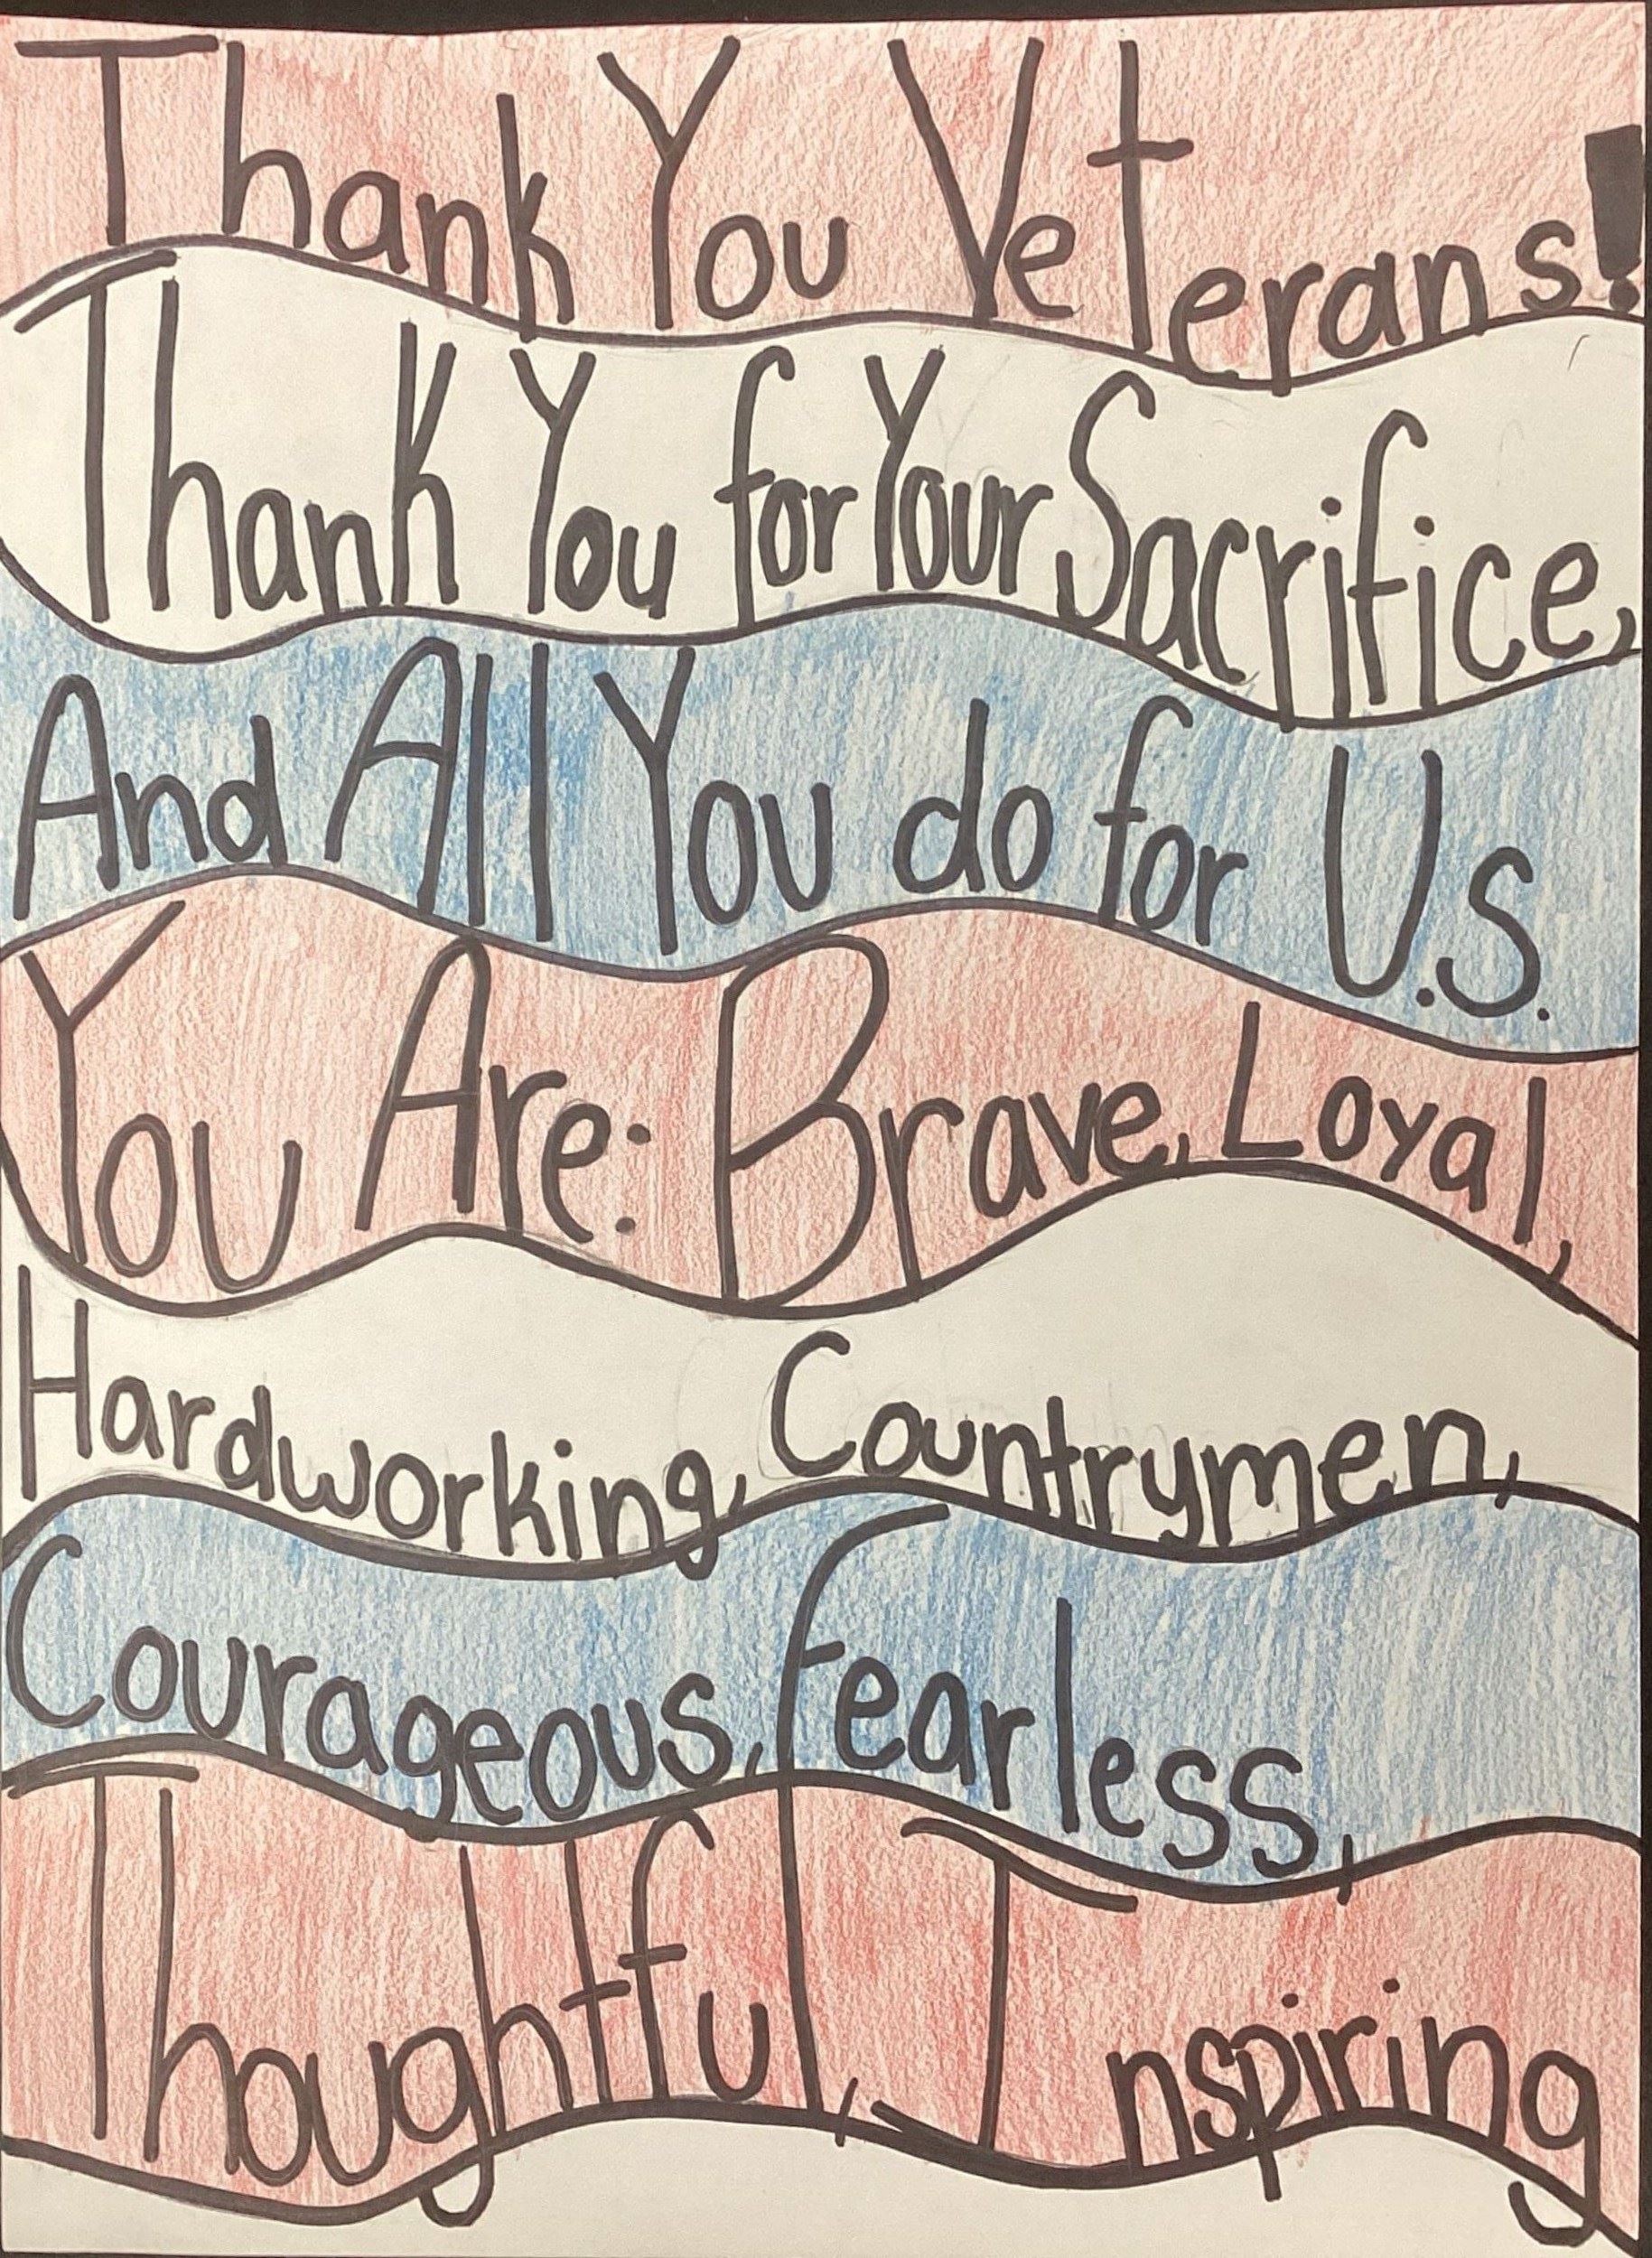 Thank You Veterans!
Thank You for Your Sacrifice,
And All You do for U.S.
You Are: Brave, Loyal,
Hardworking, Countrymen,
Courageous, fearless,
Thoughtful, Inspiring